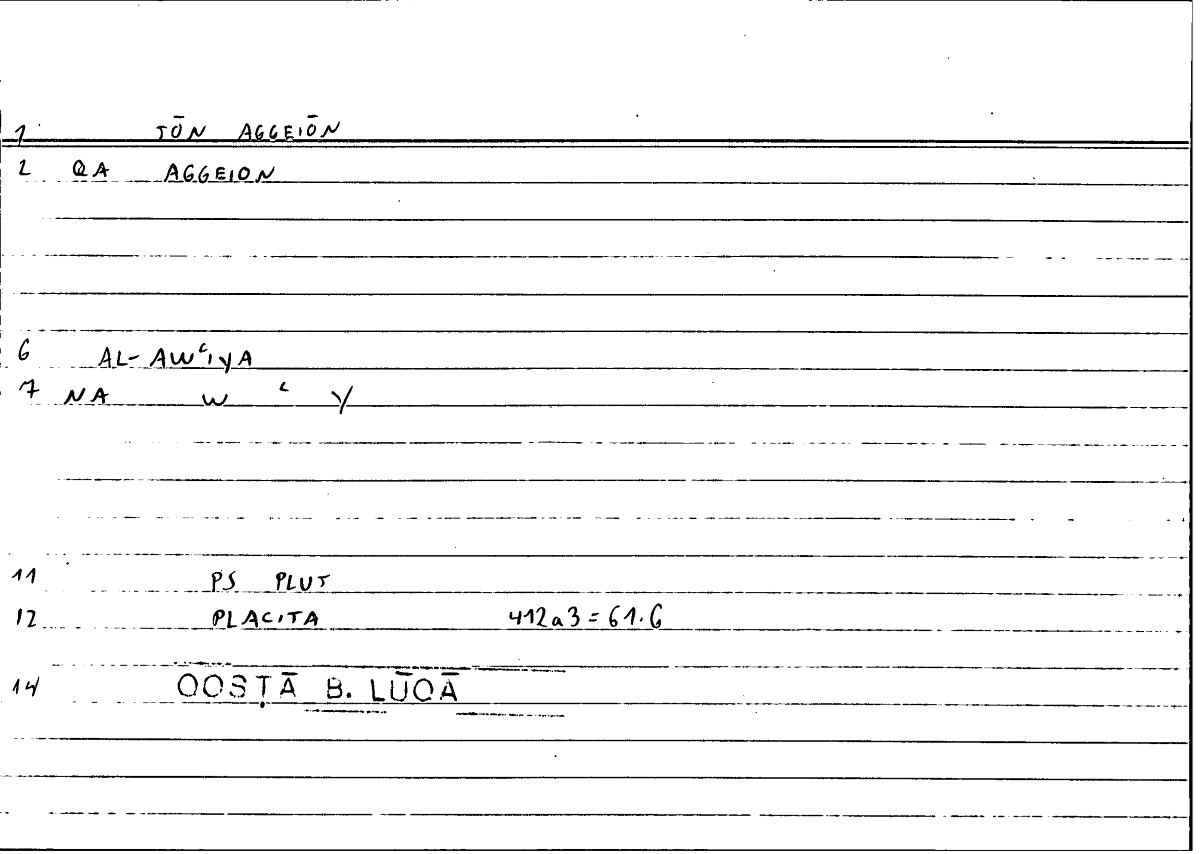 1 TŌN AGGEIŌN
2 QA AGGEION
6 AL-AWʿIYA
7 NA W ʿ Y
11 PS PLUT
12 PLACITA 412a3=61.6
14 QOSṬĀ B. LŪQĀ